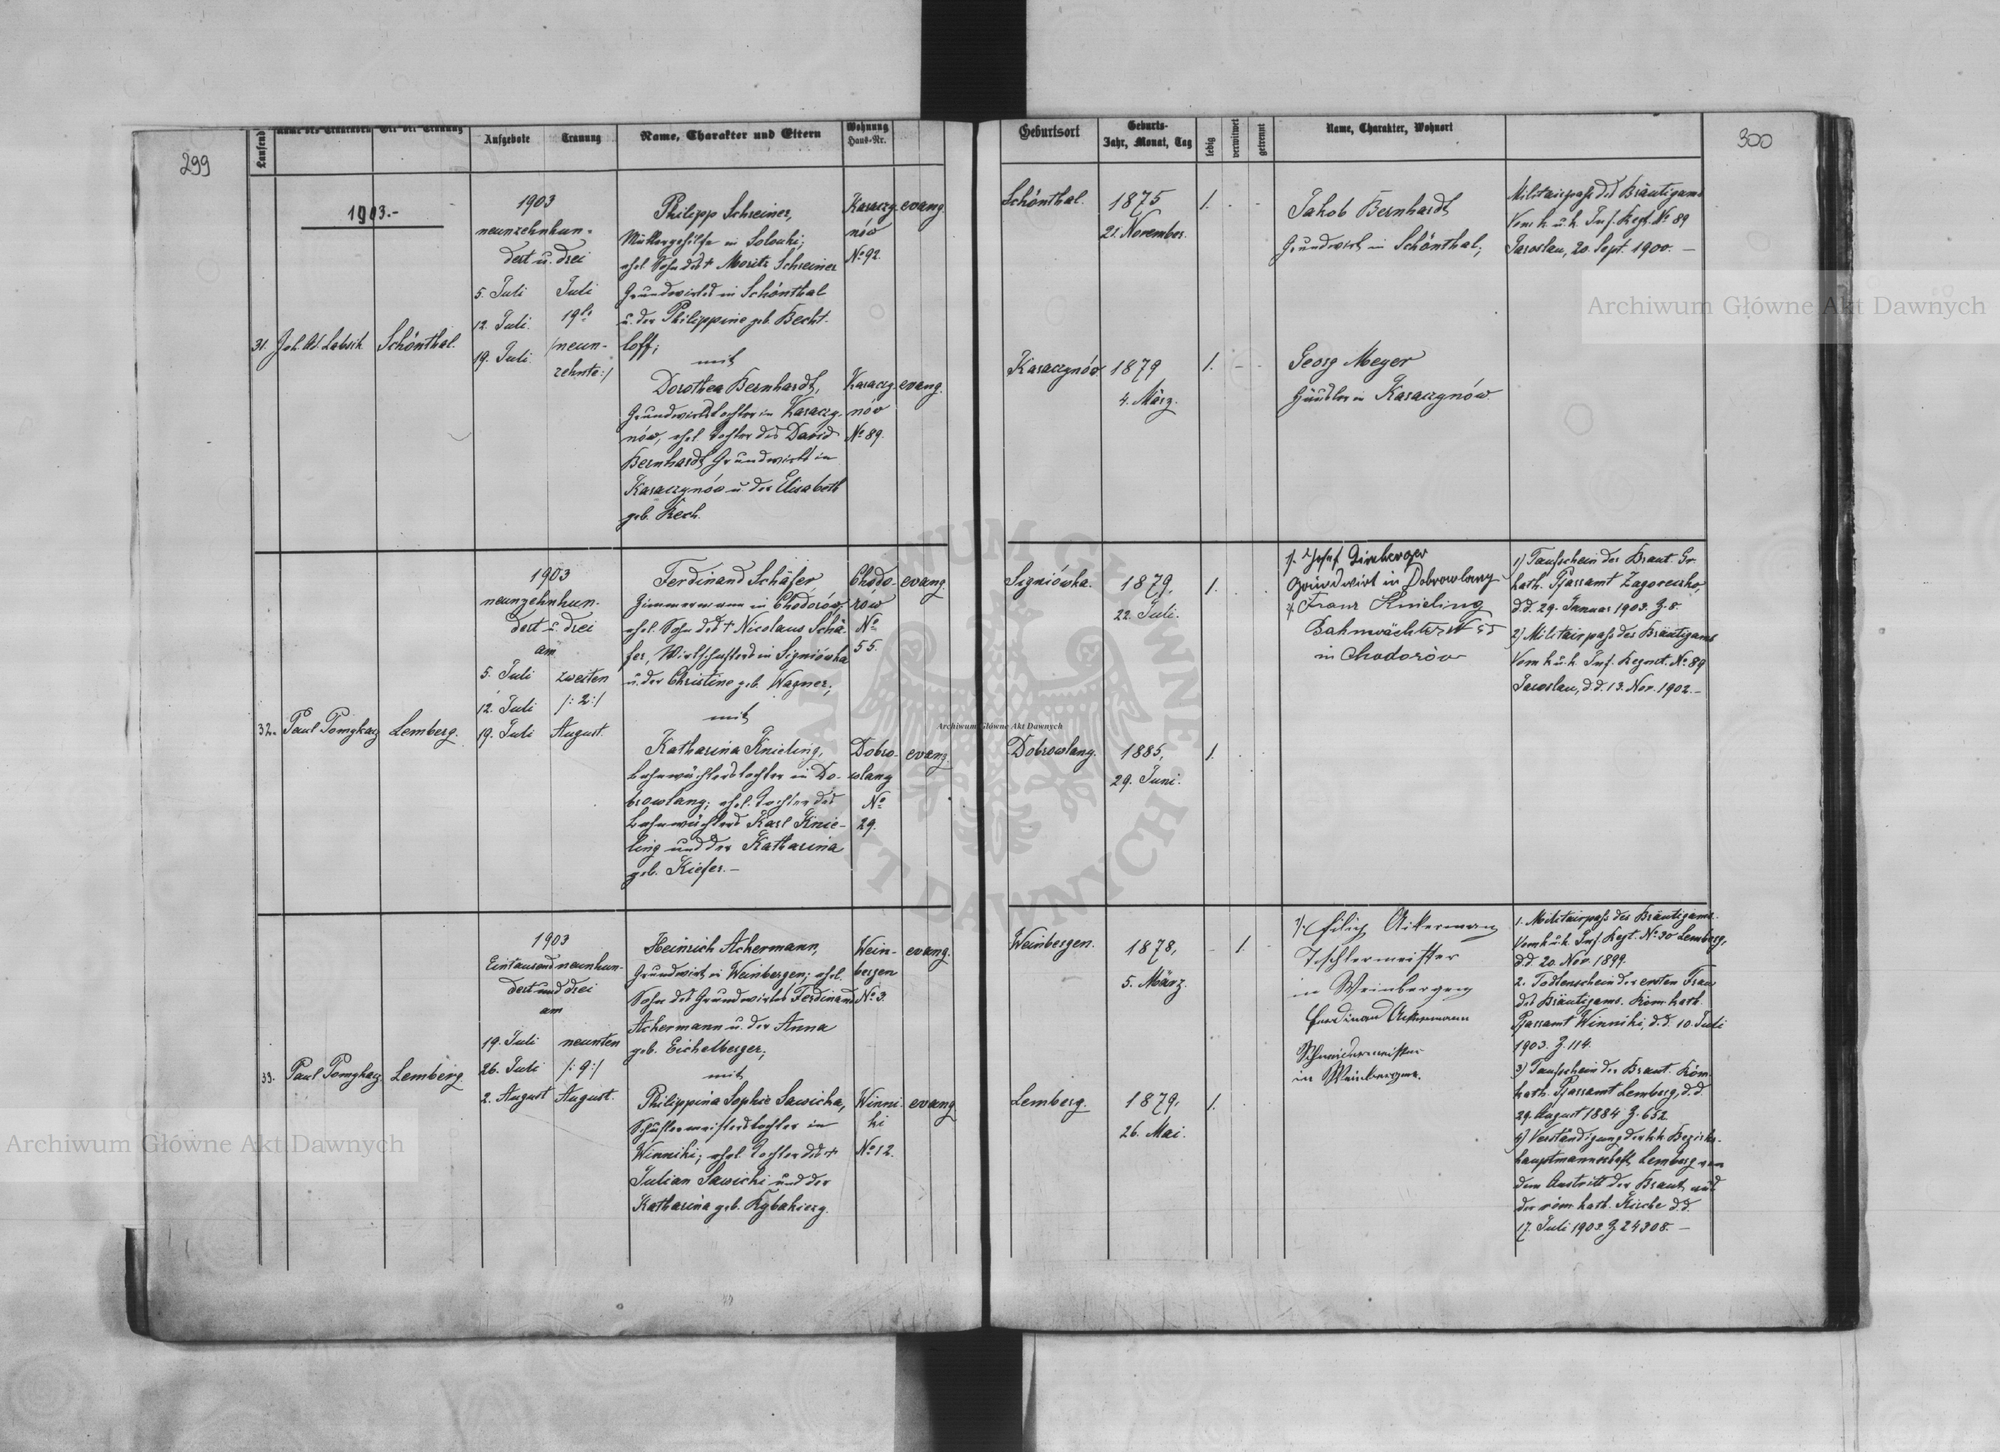 299
Laufend
Name des Trauenden
Ort der Trauung
Aufgebote
Trauung
Name, Charakter und Eltern
Wohnung
Haus-Nr.
1903.-
31
Joh. Ad. Labsik
Schönthal.
1903
neunzehnhun-
dert u. drei
5. Juli
12. Juli.
19. Juli
Juli
19ts
/neun-
zehnte:/
Philipp Schreiner,
Müllergehilfe in Solonki;
ehel. Sohn des † Moritz Schreiner
Grundwirts in Schönthal
u. der Philippine geb. Becht-
loff;
mit
Dorothea Bernhardt,
Grundwirtstochter in Karaczy-
nów, ehel. Tochter des David
Bernhardt Grundwirts in
Karaczynów u. der Elisabeth
geb. Rech.
Karaczy-
nów
No 92.
evang.
Karaczy-
nów
No 89.
evang.
32.
Paul Pomykacz
Lemberg.
1903
neunzehnhun-
dert u. drei
am
5. Juli
12. Juli
19. Juli
zweiten
/: 2:/
August
Ferdinand Schäfer
Zimmermann in Chodorów,
ehel. Sohn des † Nicolaus Schä-
fer, Wirtschafters in Sygniówka
u. der Christine geb. Wagner;
mit
Katharina Knieling,
Bahnwächterstochter in Do-
browlany; ehel. Tochter des
Bahnwächters Karl Knie-
ling und der Katharina
geb. Kiefer.-
Chodo-
rów
No
55.
evang
Dobro-
wlany
No
29.
evang
33.
Paul Pomykacz
Lemberg
1903
Eintausend neunhun-
dert und drei
am
19. Juli
26. Juli
2. August
neunten
/: 9:/
August.
Heinrich Ackermann,
Grundwirt in Weinbergen; ehel.
Sohn des Grundwirtes Ferdinand
Ackermann u. der Anna
geb. Eichelberger;
mit
Philippina Sophie Sawicka,
Schustermeisterstochter in
Winniki; ehel. Tochter des †
Julian Sawicki und der
Katharina geb.
Wein-
bergen
No 3.
evang.
Winni-
ki
No 12.
evang
300
Geburtsort
Geburts-
Jahr, Monat, Tag
ledig
verwitwet
getrennt
Name, Charakter, Wohnort
Schönthal.
1875
21. November.
1.
Jakob Bernhardt
Grundwirt in Schönthal;
Militairpaß des Bräutigams
Vom k. u. k. Inf. Regt. No 89
Jaroslau, 20. Sept. 1900. —
Karaczynów
1879
4. März.
1.
Georg Meyer
Häusler in Karaczynów
Sygniówka.
1879,
22. Juli.
1.
1. Josef Dirnberger
Grundwirt in Dobrowlany
Franz Knieling
Bahnwächter N 55
in Chodorów
1) Taufschein der Braut. Gr.
kath. Pfarramt Zagoreczko,
d.d. 29. Januar 1903. Z. 8.
2) Militairpaß des Bräutigams
Vom k. u. k. Inf. Regmt. No 89
Jaroslau, d.d. 13. Nov. 1902.-
Dobrowlany.
1885,
29. Juni.
1.
Weinbergen.
1878,
5. März.
1.
Filip Ackermann
Tischlermeister
in Weinbergen
Ferdinand Ackermann
Schneidermeister
in Weinbergen.
1. Militairpaß des Bräutigams.
Vom k. u. k. Inf. Regt. No 30 Lemberg,
d.d. 20. Nov. 1899.
2. Todtenschein der ersten Frau
des Bräutigams. Röm. kath.
Pfarramt Winniki, d.d. 10. Juli
1903. Z. 114.
3) Taufschein der Braut. Röm.
kath. Pfarramt Lemberg, d.d.
29. August 1884 Z. 652
4) Verständigung der k.k. Bezirks-
hauptmannschaft Lemberg von
dem Austritt der Braut aus
der röm. kath. Kirche d.d.
17. Juli 1903 Z. 24308. —
Lemberg.
1879,
26. Mai.
1.
Archiwum Główne Akt Dawnych
Archiwum Główne Akt Dawnych
Archiwum Główne Akt Dawnych
ARCHIWUM GŁÓWNE AKT DAWNYCH